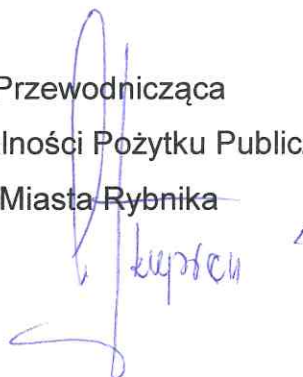 Przewodnicząca
lności Pożytku Public
Miasta Rybnika